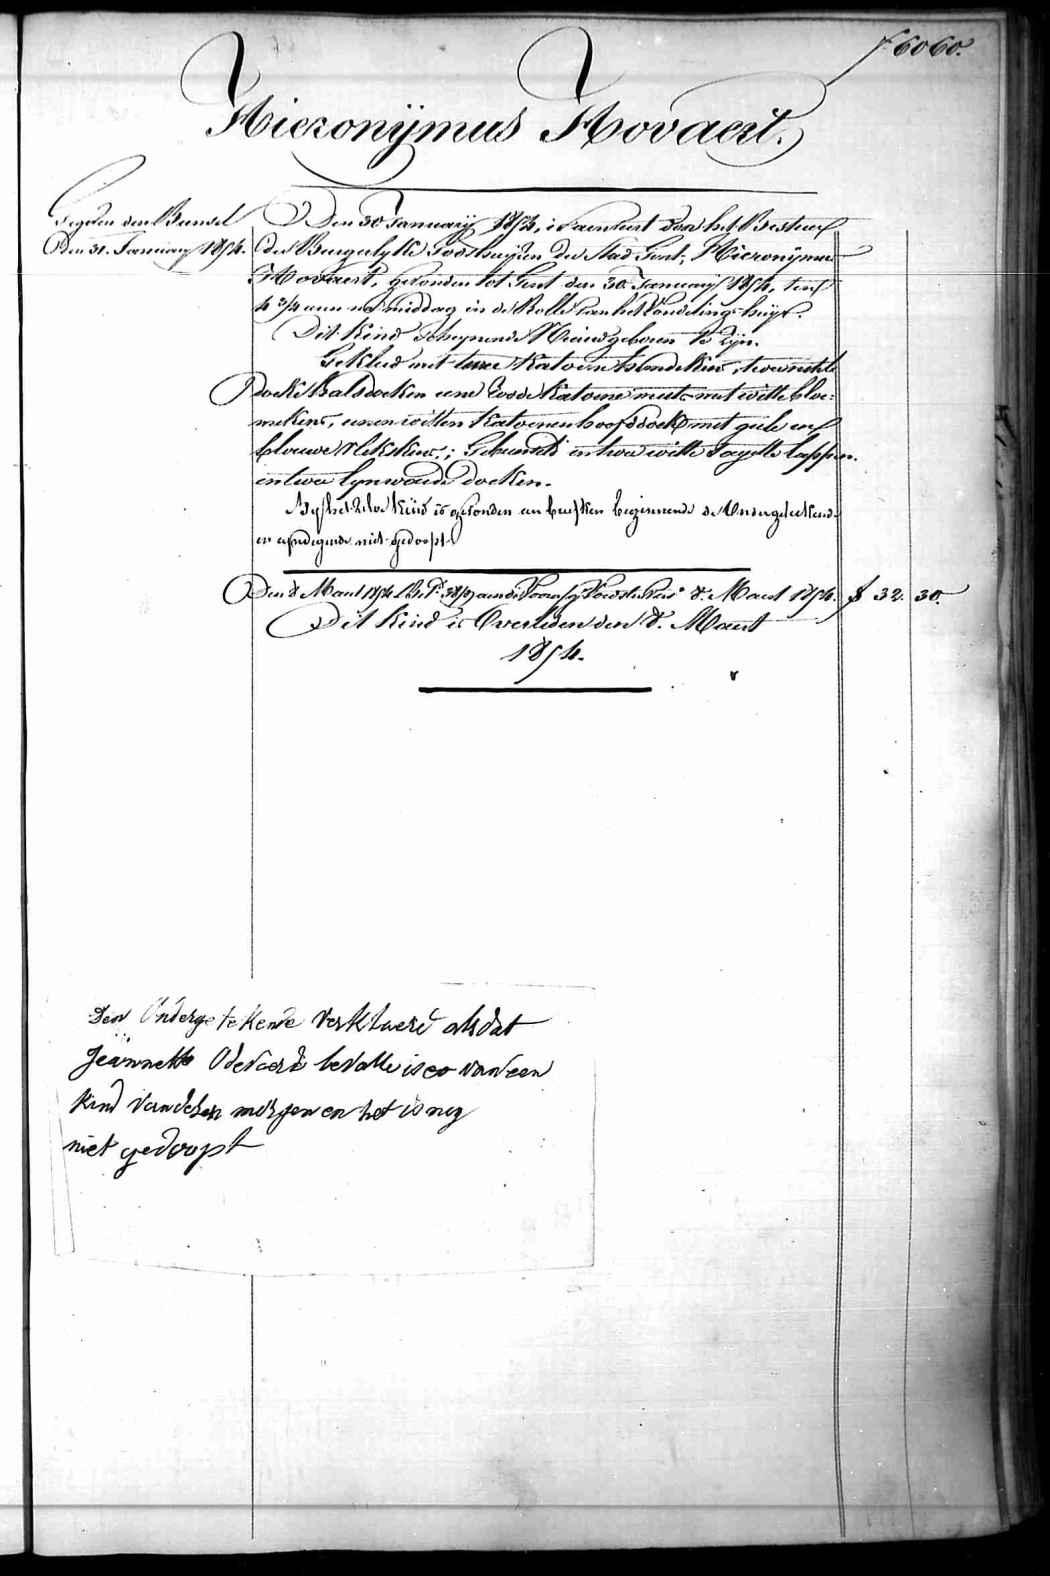 f 6060.
Hieronÿmus Hovaert.
Gegeven den Bundel
Den 31. January 1854.
Den 30 Januarÿ 1854, is aenveert door het Bestuer
der Burgerlyke Godshuyzen der Stad Gent, Hieronymus
Hovaert, gevonden tot Gent den 30 January 1854, ten
4 3/4 uren na middag in de Rolle van het Vondelinghuys.
Dit Kind schynende Nieuwgeboren te zyn.
Gekleed met twee Katoene hemdekens, twee witte
doeke halsdoeken eene roode Katoene muts met witte bloe-
mekens, eenen witten Katoenen hoofddoek met geele en
blouwe vlekskens; Gebunseld in twee witte sayette lappen
en twee lynwaede doeken.
By het zelve kind is gevonden een briefken beginnende de Ondergeteekende
en eyndigende niet gedoopt
Den 8 Maert 1854 aen de Voorsz. 8. Maert 1854. f 32. 30.
Dit Kind is Overleden den 8. Maert
1854.
Den Ondergetekende verklaerd als dat
Jeannette Odevaert bevalle is van een
kind van desen morgen en het is nog
niet gedoopt